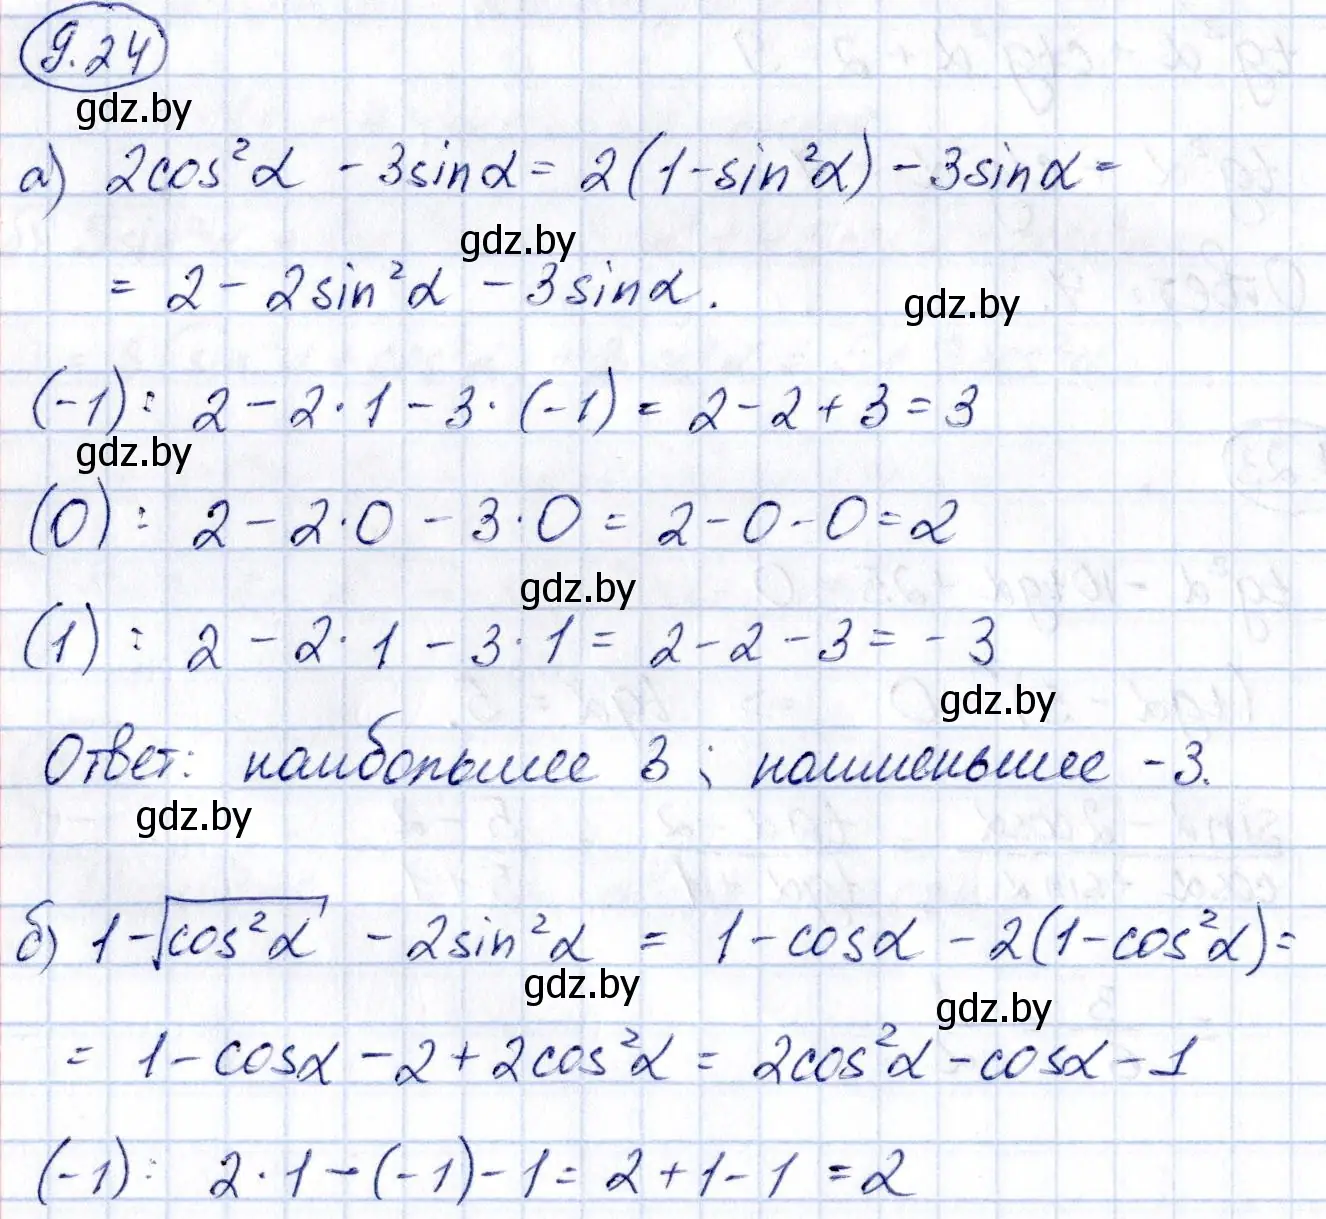 9.24
gdz.by
а) 2cos²α - 3sinα = 2(1-sin²α) - 3sinα =
gdz.by
= 2 - 2sin²α - 3sinα.
gdz.by
(-1): 2 - 2·1 - 3·(-1) = 2 - 2 + 3 = 3
gdz.by
(0): 2 - 2·0 - 3·0 = 2 - 0 - 0 = 2
gdz.by
(1): 2 - 2·1 - 3·1 = 2 - 2 - 3 = -3
gdz.by
Ответ: наибольшее 3; наименьшее -3.
gdz.by
б) 1-√cos²α - 2sin²α = 1 - cosα - 2(1-cos²α) =
gdz.by
gdz.by
= 1 - cosα - 2 + 2cos²α = 2cos²α - cosα - 1
(-1): 2·1 - (-1) - 1 = 2 + 1 - 1 = 2